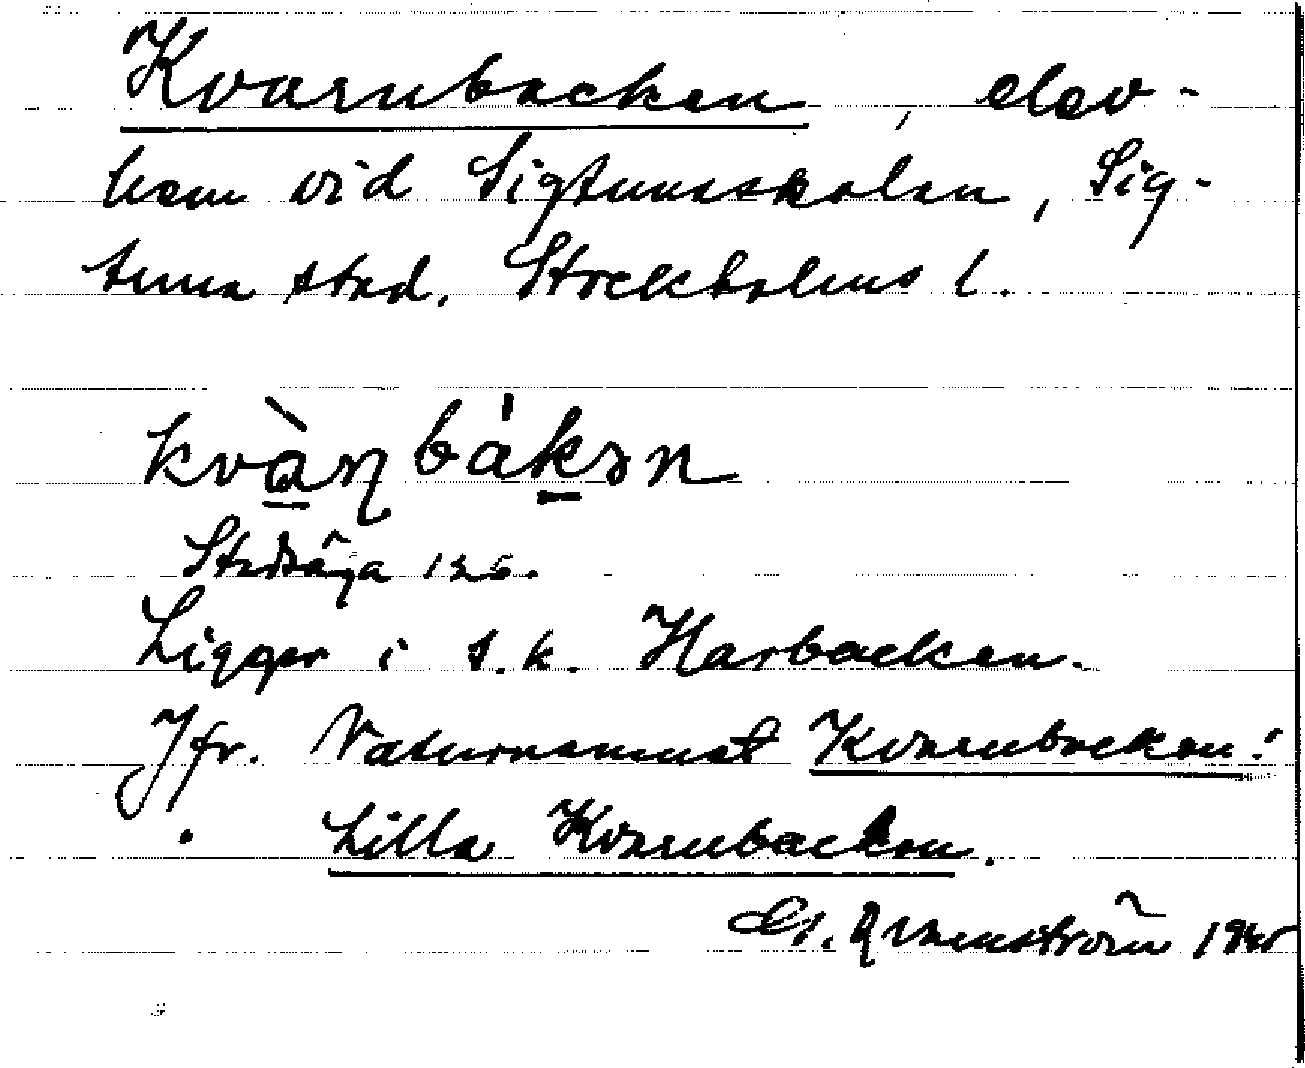 Kvarnbacken, elev-
hem vid Sigtunaskolan, Sig-
tuna stad. Stockholms l.
kvàɳbákən
Stadsäga 126.
Ligger i s.k. Harbacken.
Jfr. Naturnamnet Kvarnbacken!
Lilla Kvarnbacken.